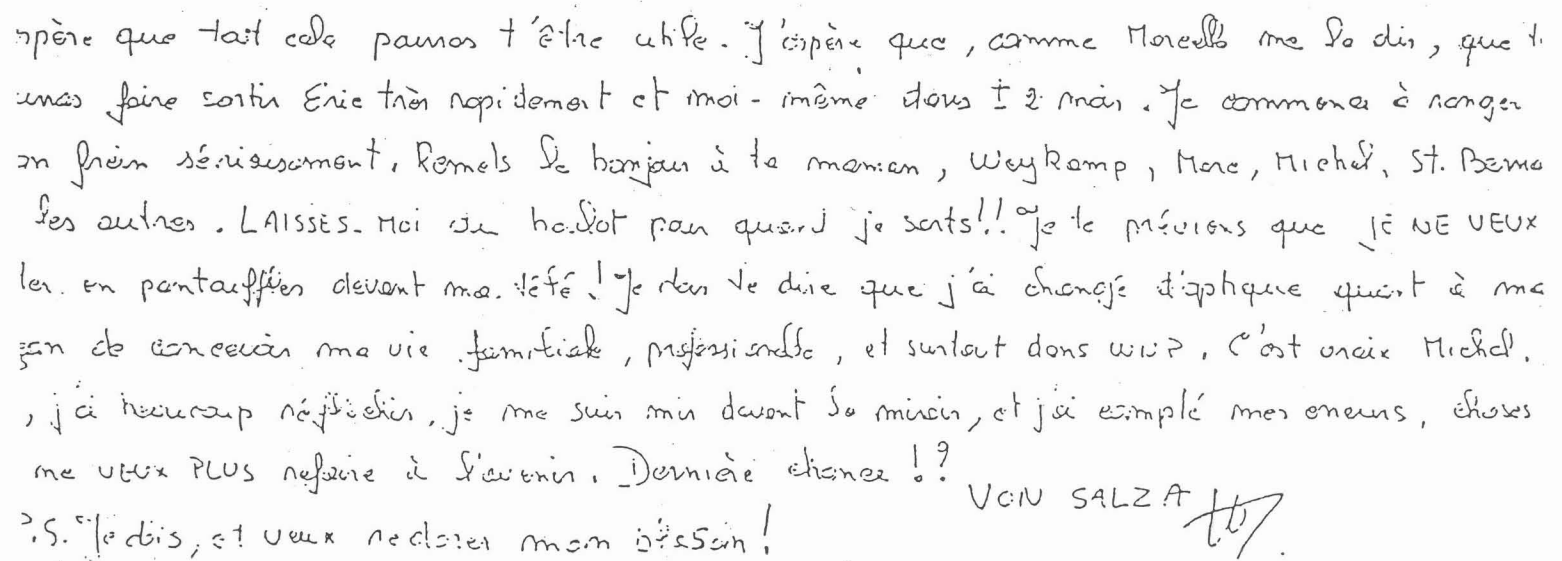 spère que tout cela pourras t'être utile. J'espère que, comme Morcello me le dis, que t
feras faire sortir Eric très rapidement et moi-même dans ± 2 mois. Je commence à ronger
on frein sérieusement. Remets le bonjour à ta maman, Weykamp, Marc, Michel, St. Berna
les autres. LAISSES-MOI du boulot pour quand je sorts!! Je te préviens que JE NE VEUX
ler en pantouffles devant ma télé! Je dois te dire que j'ai changé d'optique quant à ma
çon de concevoir ma vie familiale, professionelle, et surtout dans . C'est vraix Michel,
, j'ai beaucoup réfléchis, je me suis mis devant le miroir, et j'ai compté mes erreurs, choses
ne veux PLUS refaire à l'avenir. Dernière chance!?
VON SALZA
P.S. Je dois, et veux redorer mon blason!